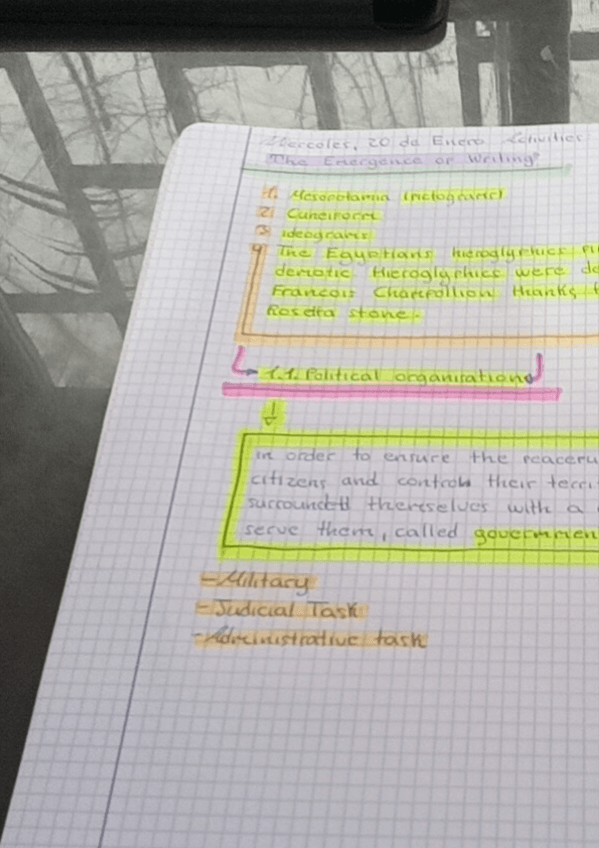 Miercoles, 20 de Enero Activities
The Emergence of Writing
1. Mesopotamia (pictograms)
2. Cuneiform
3. ideograms
4 The Egyptians hieroglyphics
demotic Hieroglyphics were
Francois Champollion thanks
Rosetta stone.
1.1. Political organisation
in order to ensure the
citizens and control their
surrounded themselves with a
serve them, called
- Military
- Judicial Task
- Administrative task